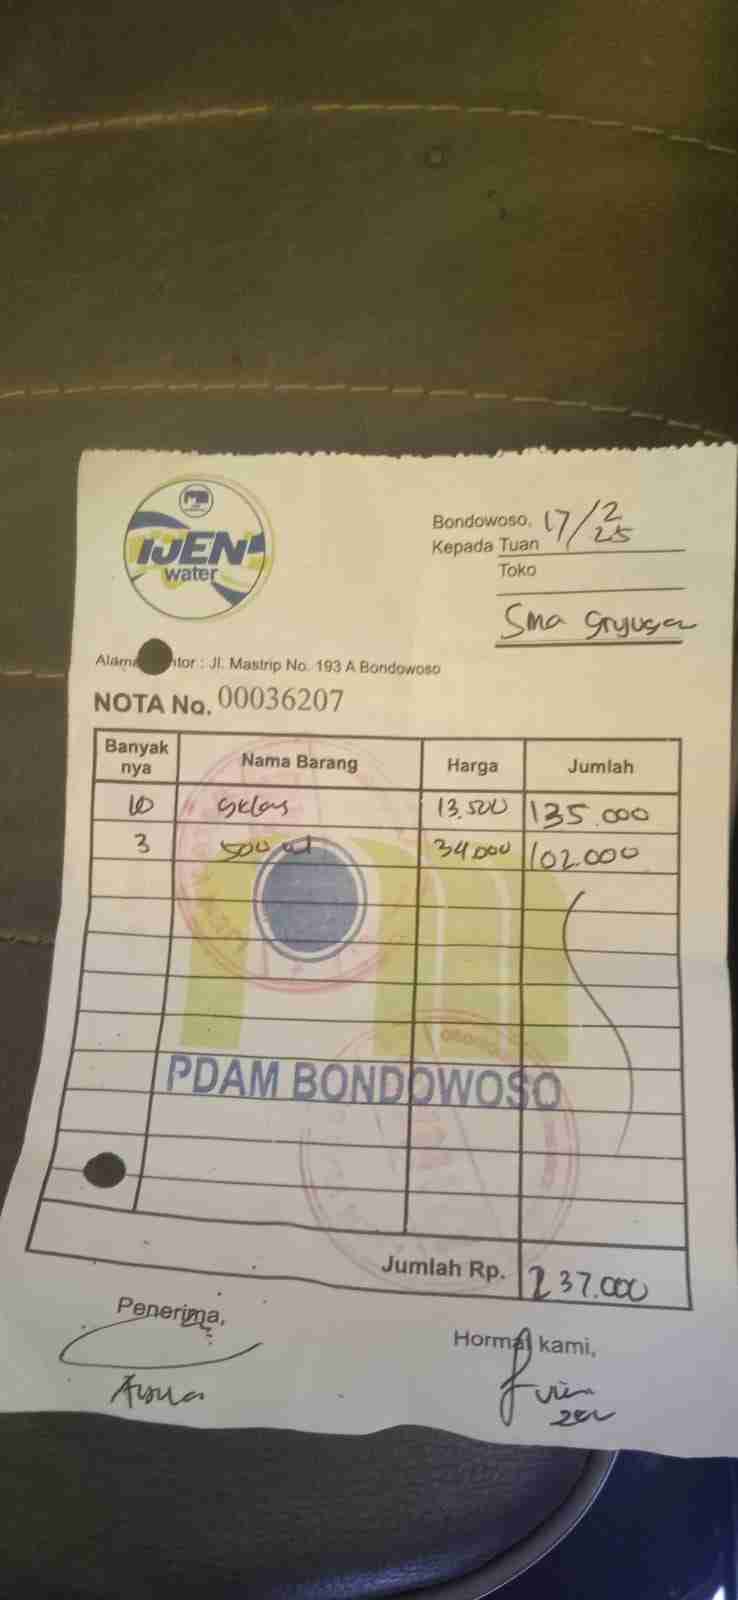 IJEN
water
Bondowoso, 17/2 25
Kepada Tuan
Toko
Sma
Alamat Kantor : Jl. Mastrip No. 193 A Bondowoso
NOTA No. 00036207
Banyak nya Nama Barang Harga Jumlah
10 gelas 13.500 135.000
3 500 ml 34.000 102.000
PDAM BONDOWOSO
Jumlah Rp. 237.000
Penerima, Hormat kami,